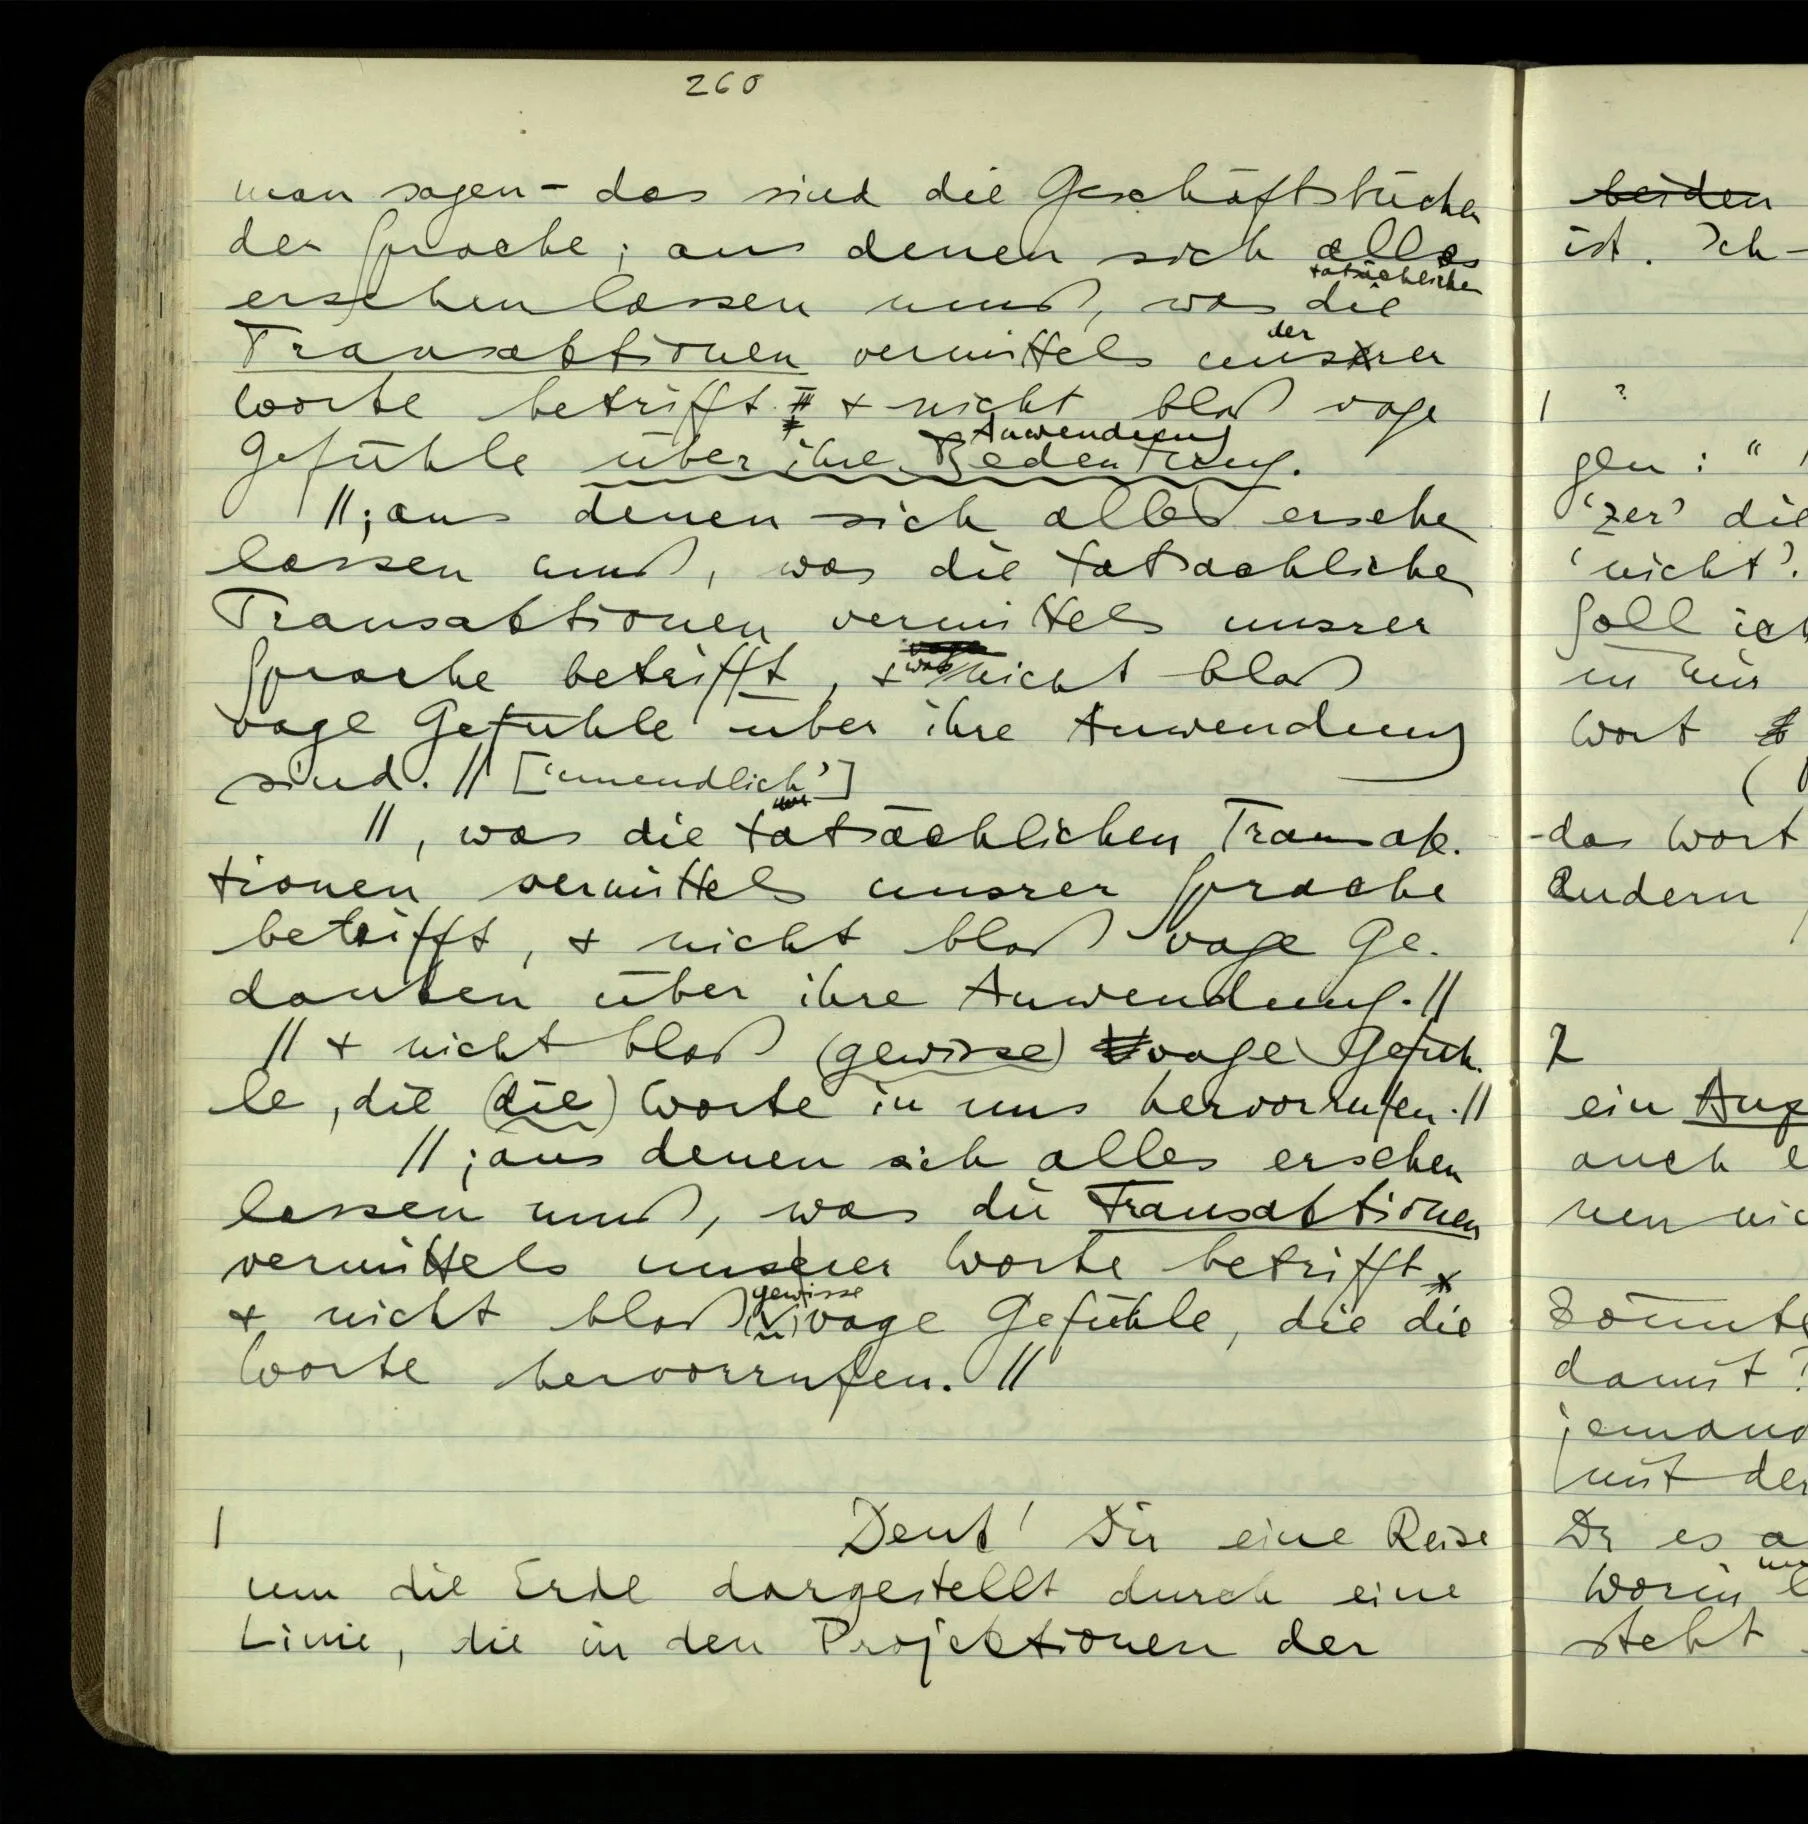 260
man sagen – das sind die Geschäftsbücher
der Sprache; aus denen sich alles
tatsächlichen
ersehen lassen muß, was die
der
Transaktionen vermittels unserer
Worte betrifft & nicht bloß vage
Anwendung
Gefühle über ihre Bedeutung.
//; aus denen sich alles ersehen
lassen muß, was die tatsächlichen
Transaktionen vermittels unsrer
Sprache betrifft, & was nicht bloß
vage Gefühle über ihre Anwendung
sind. // [‘unendlich’]
//, was die tatsächlichen Transak-
tionen vermittels unsrer Sprache
betrifft, & nicht bloß vage Ge-
danken über ihre Anwendung. //
// & nicht bloß (gewisse) vage Gefüh-
le, die (die) Worte in uns hervorrufen. //
//; aus denen sich alles ersehen
lassen muß, was die Transaktionen
vermittels unserer Worte betrifft
gewisse
& nicht bloß vage Gefühle, die die
Worte hervorrufen. //
| Denk' Dir eine Reise
um die Erde dargestellt durch eine
Linie, die in den Projektionen der
beiden
ist. Ich
| ?
gen: “
‘zer’ die
‘nicht’.
Soll ich
in mir
Wort
(
das Wort
Andern
2
ein
auch
nen
könnte
damit?
jemand
mit der
Du es
Worin
steht